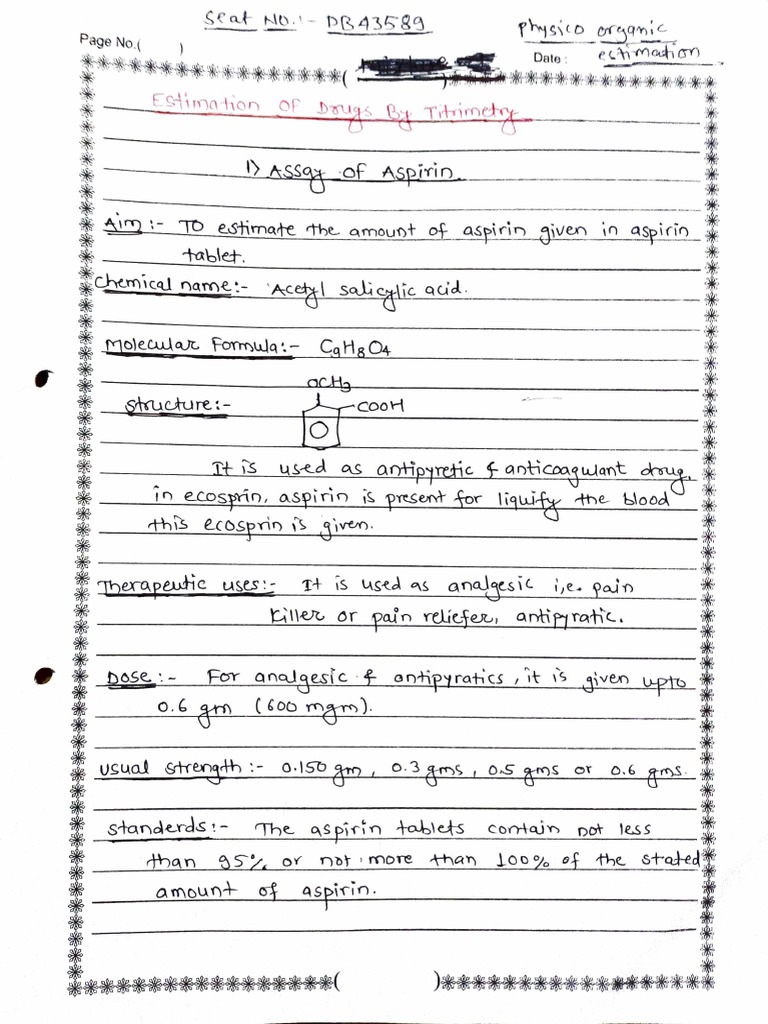 Seat No.:- DB43589
Physico organic
Page No.( )
Date: estimation
Estimation of Drugs By Titrimetry
1) Assay of Aspirin
Aim:- To estimate the amount of aspirin given in aspirin
tablet.
Chemical name:- Acetyl salicylic acid.
Molecular Formula:- C9H8O4
OCH3
Structure:- COOH
It is used as antipyretic & anticoagulant drug,
in ecosprin, aspirin is present for liquify the blood
this ecosprin is given.
Therapeutic uses:- It is used as analgesic i,e. pain
killer or pain reliefer, antipyratic.
Dose:- For analgesic & antipyratics, it is given upto
0.6 gm (600 mgm).
usual strength:- 0.150 gm, 0.3 gms, 0.5 gms or 0.6 gms.
Standerds:- The aspirin tablets contain not less
than 95% or not more than 100% of the stated
amount of aspirin.